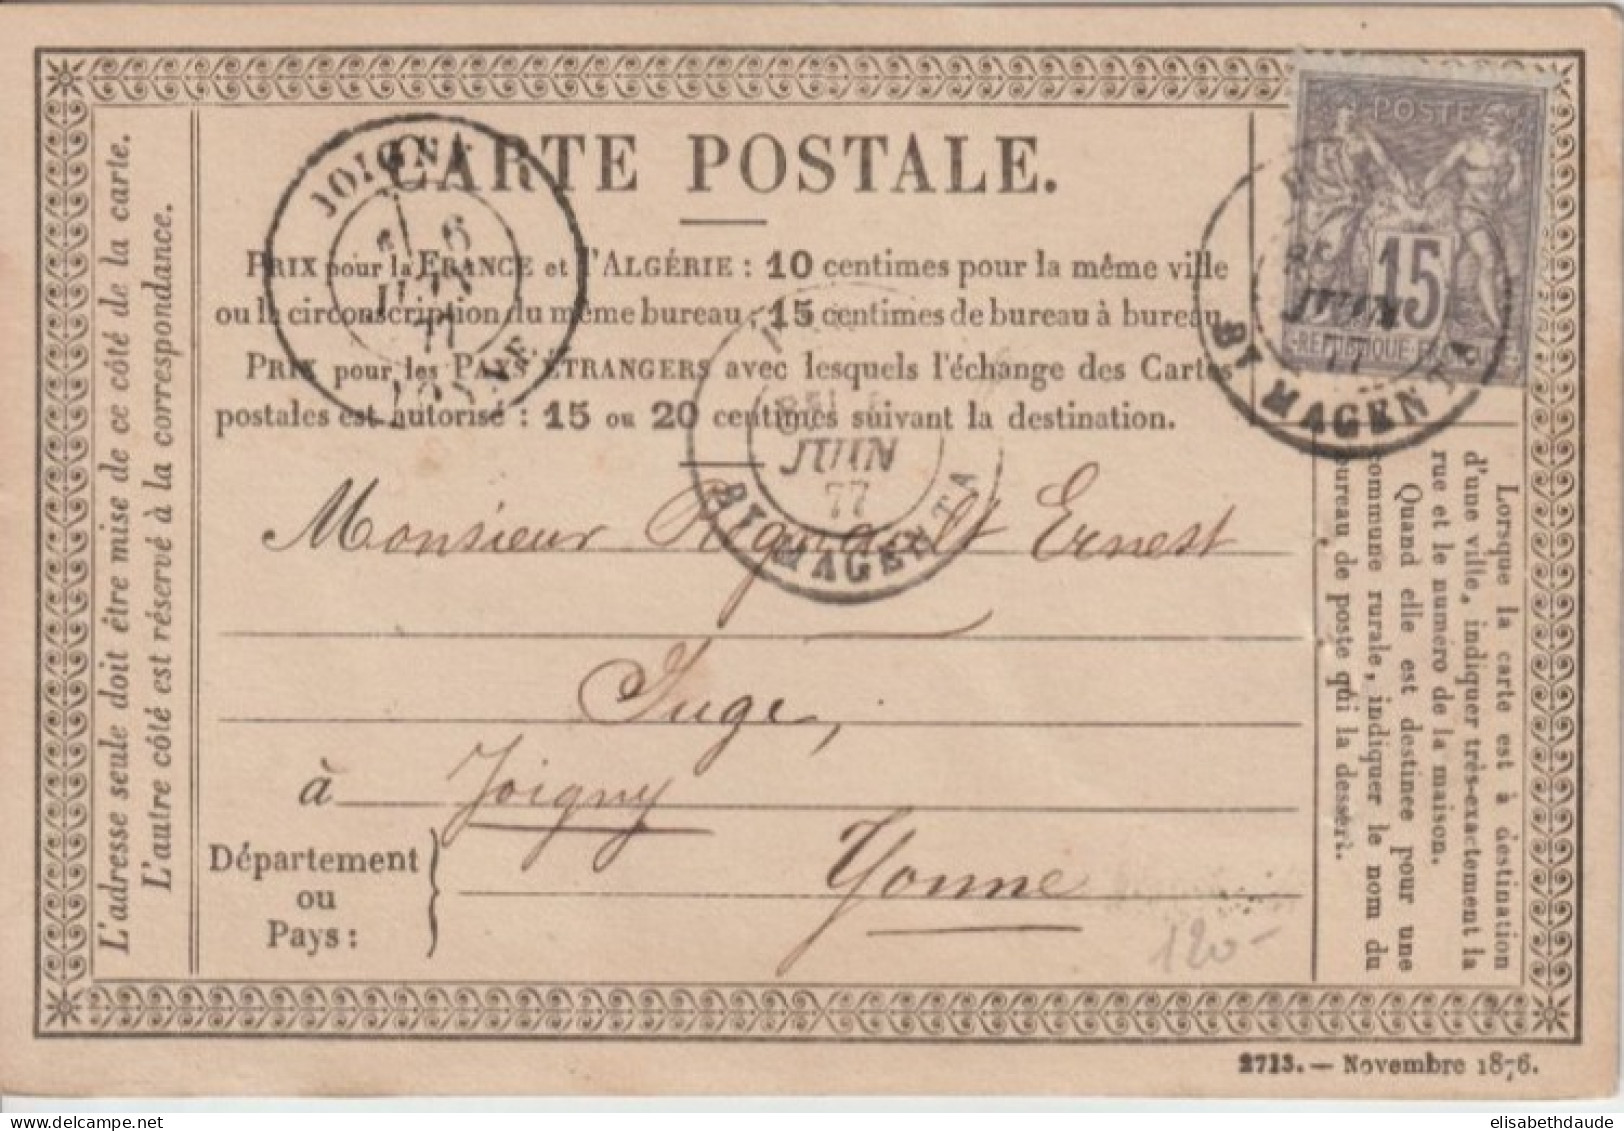 CARTE POSTALE.
PRIX pour la FRANCE et l'ALGÉRIE : 10 centimes pour la même ville
ou la circonscription du même bureau ; 15 centimes de bureau à bureau.
PRIX pour les PAYS ÉTRANGERS avec lesquels l'échange des Cartes
postales est autorisé : 15 ou 20 centimes suivant la destination.
Monsieur Ernest
Juge,
à Joigny
Département
ou
Pays :
Yonne
120-
L'adresse seule doit être mise de ce côté de la carte.
L'autre côté est réservé à la correspondance.
Lorsque la carte est à destination
d'une ville, indiquer très-exactement la
rue et le numéro de la maison.
Quand elle est destinée pour une
commune rurale, indiquer le nom du
bureau de poste qui la dessert.
POSTE
15
JOIGNY
6
JUIN
77
YONNE
JUIN
77
BT MAGENTA
JUIN
77
BT MAGENTA
2713. — Novembre 1876.
elisabethdaude